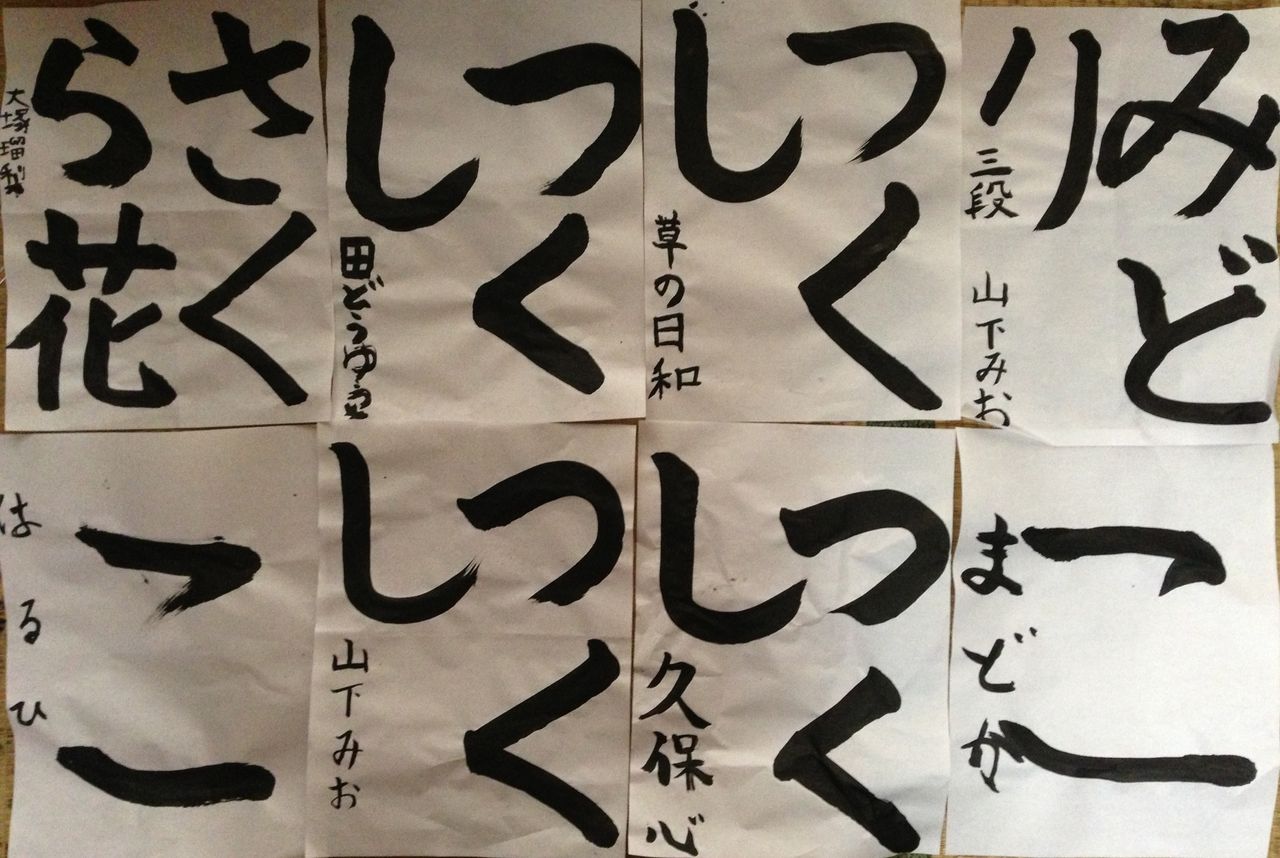 みど
り
三段 山下みお
つく
し
草の日和
つく
し
田どうゆ
さく
ら花
大塚瑠
こ
まどか
つく
し
久保心
つく
し
山下みお
こ
はるひ